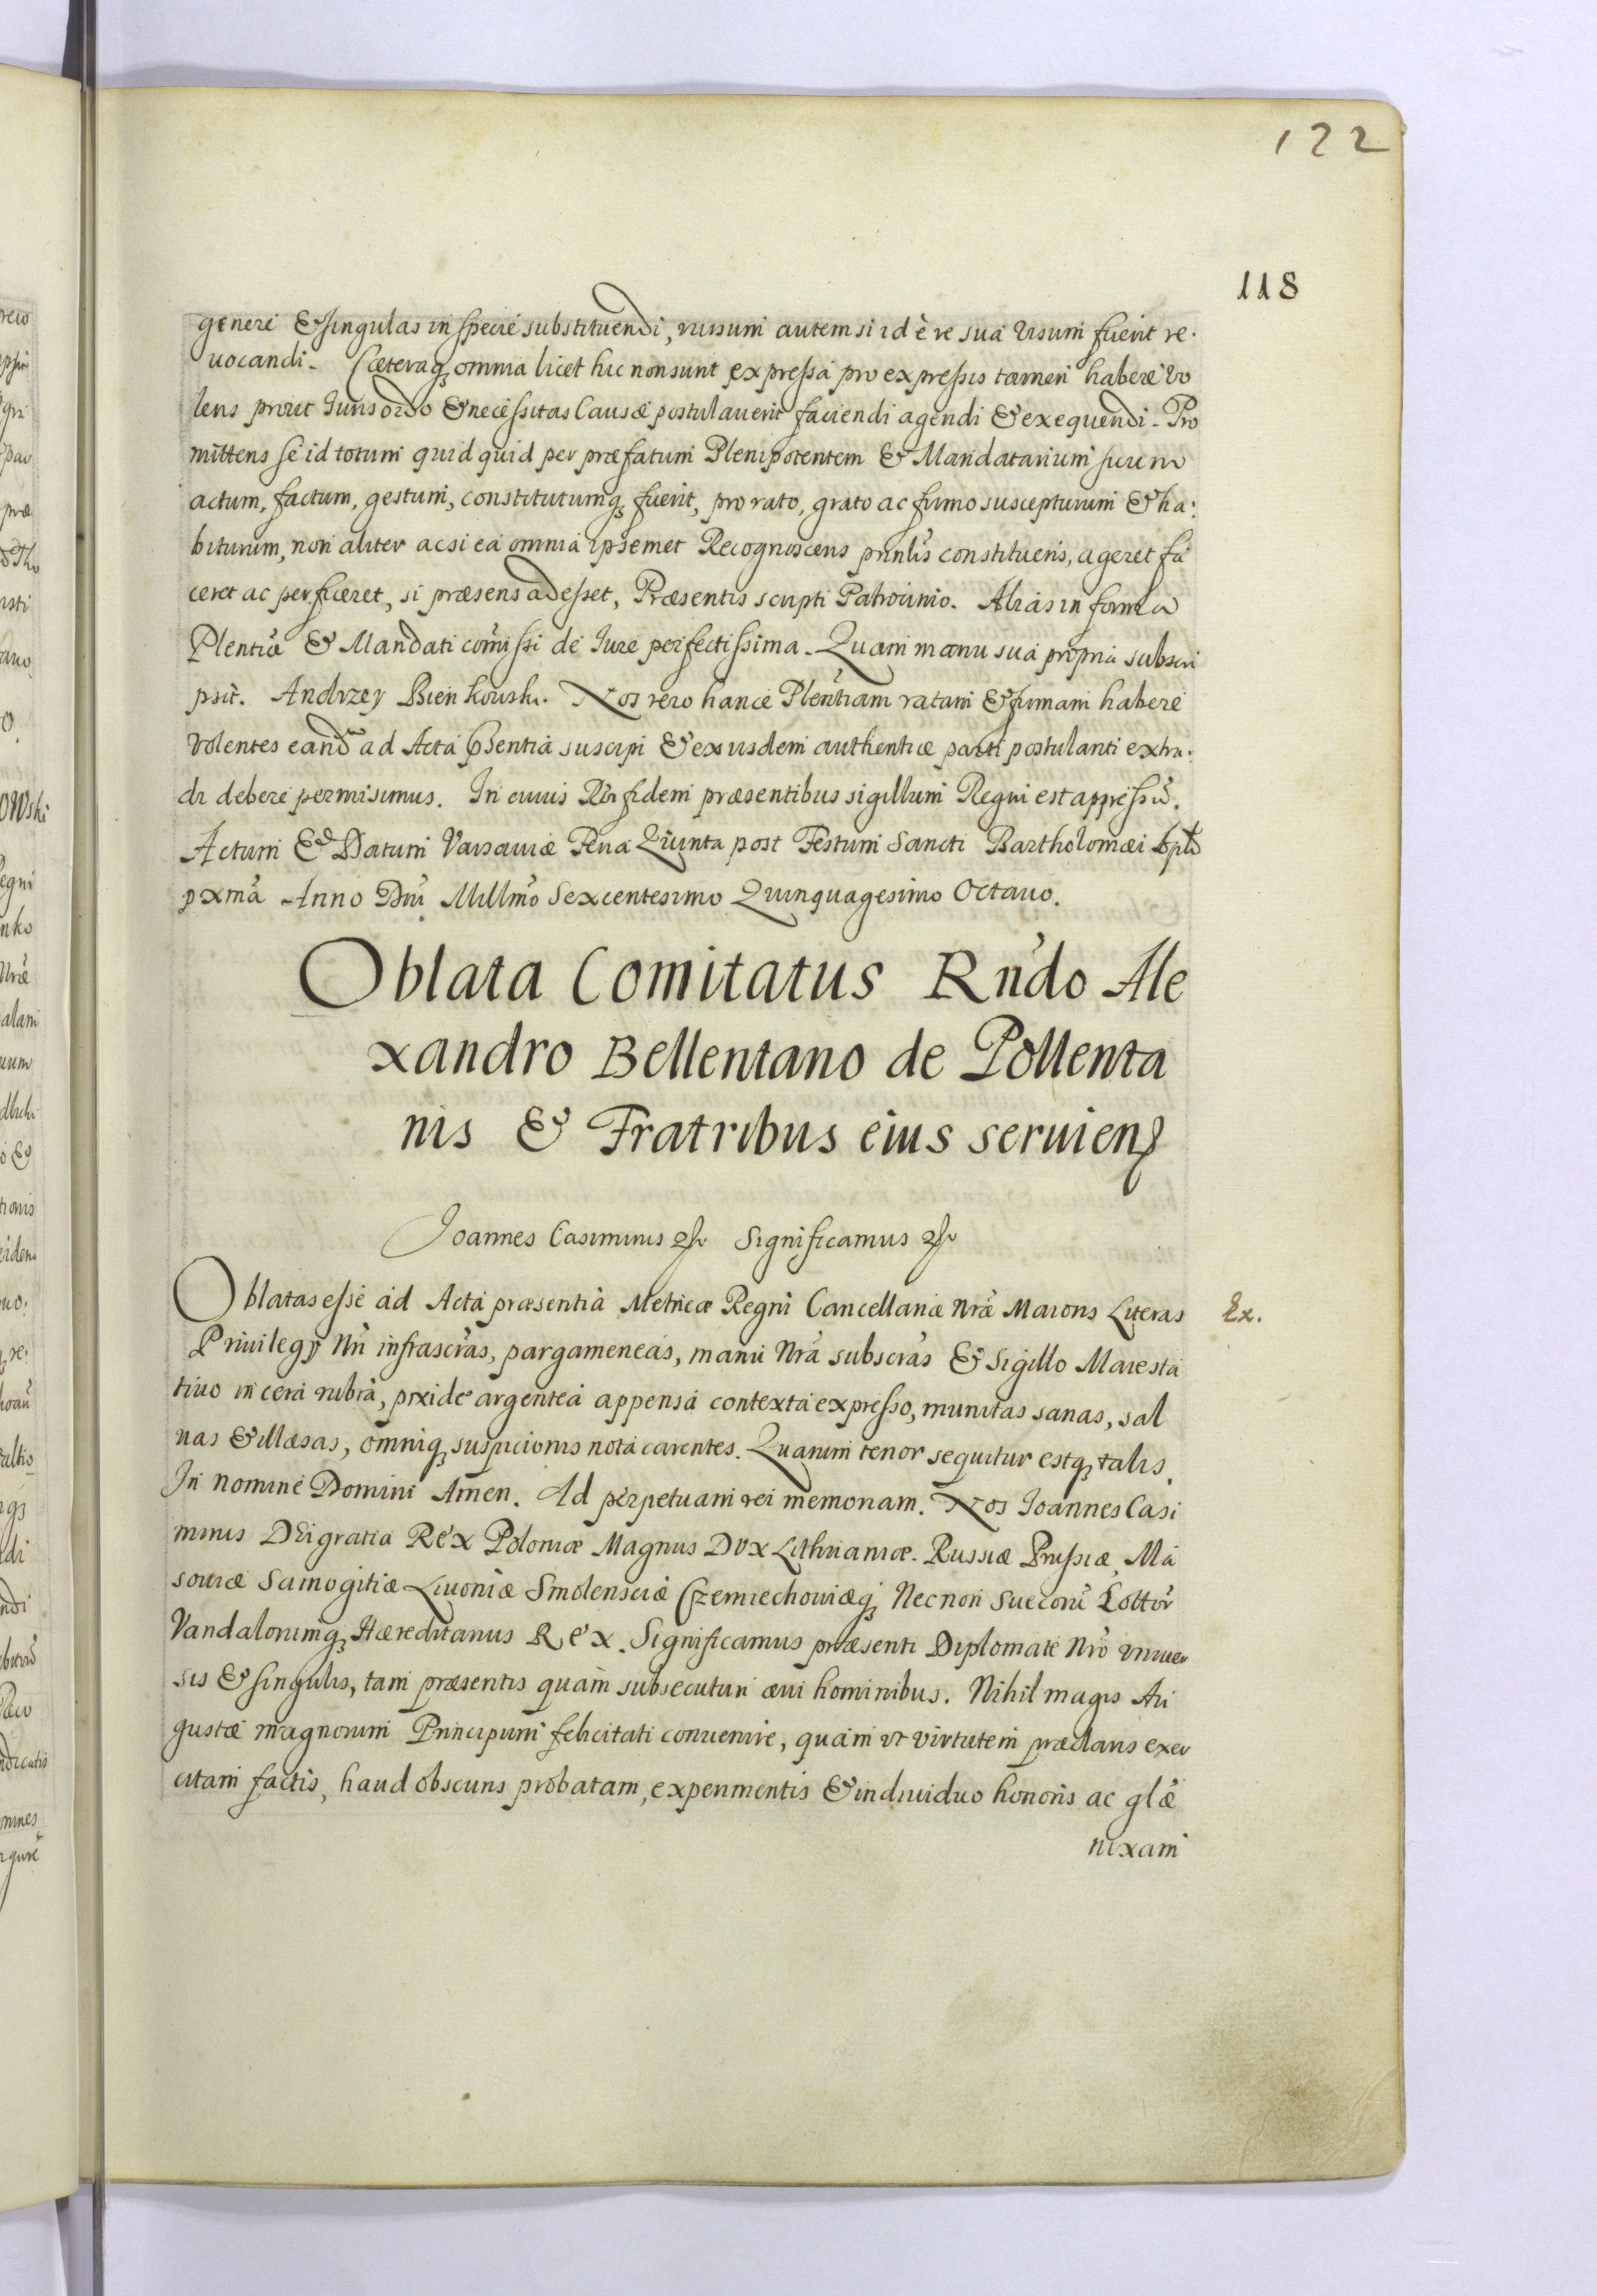 122
118
genere & singulas in specie substituendi, rursum autem si id è re sua visum fuerit re-
uocandi. Cæteraq, omnia licet hic non sunt expressa pro expressis tamen habere vo
lens prout Iuris ordo & necessitas Causæ postulauerit faciendi agendi & exequendi. Pro
mittens se id totum quid quid per præfatum Plenipotentem & Mandatarium suum
actum, factum, gestum, constitutumq, fuerit, pro rato, grato ac firmo suscepturum & ha:
biturum, non aliter ac si ea omnia ipsemet Recognoscens prinlis constituens, ageret fa
ceret ac perficeret, si præsens adesset, Præsentis scripti Patrocinio. Alias in forma
Plentiæ & Mandati comissi de Iure perfectissima. Quam manu sua propria subscri
psit. Andrzey Bienkowski. Nos vero hance Plentiam ratam & firmam habere
volentes eand ad Acta psentia suscipi & exiusdem authentice parti postulanti extra.
di debere permisimus. In cuius Rei fidem præsentibus sigillum Regni est appressu.
Actum & Datum Varsauiæ Feria Quinta post Festum Sancti Bartholomæi Apli
pxma Anno Dni Millmo Sexcentesimo Quinquagesimo Octauo.
Oblata Comitatus Rndo Ale
xandro Bellentano de Pollenta
nis & Fratribus eius seruien
Joannes Casimirus Significamus
Oblatas esse ad Acta præsentia Metricæ Regni Cancellariæ Nræ Maioris Literas
Ex.
Priuilegy Nri infrascras, pargameneas, manu Nra subscras & Sigillo Maiesta
tiuo in cera rubra, pixide argentea appensa contexta expresso, munitas sanas, sal
uas & illæsas, omniq, suspicionis nota carentes. Quarum tenor sequitur estq, talis.
In nomine Domini Amen. Ad perpetuam rei memoriam. Nos Joannes Casi
mirus DEi gratia Rex Poloniæ Magnus Dux Lithuaniæ. Russiæ Prussiæ, Ma
souiæ Samogitiæ Liuoniæ Smolensciæ Czerniechouiæq, Necnon Suecoru Gottor
Vandalorumq, Hæreditarius Rex. Significamus præsenti Diplomate Nro vniuer
sis & singulis, tam præsentis quam subsecuturi æui hominibus. Nihil magis Au
gustæ magnorum Principum felicitati conuenire, quam vt virtutem præclaris exer
citam factis, haud obscuris probatam, experimentis & indiuiduo honoris ac glæ
nixam